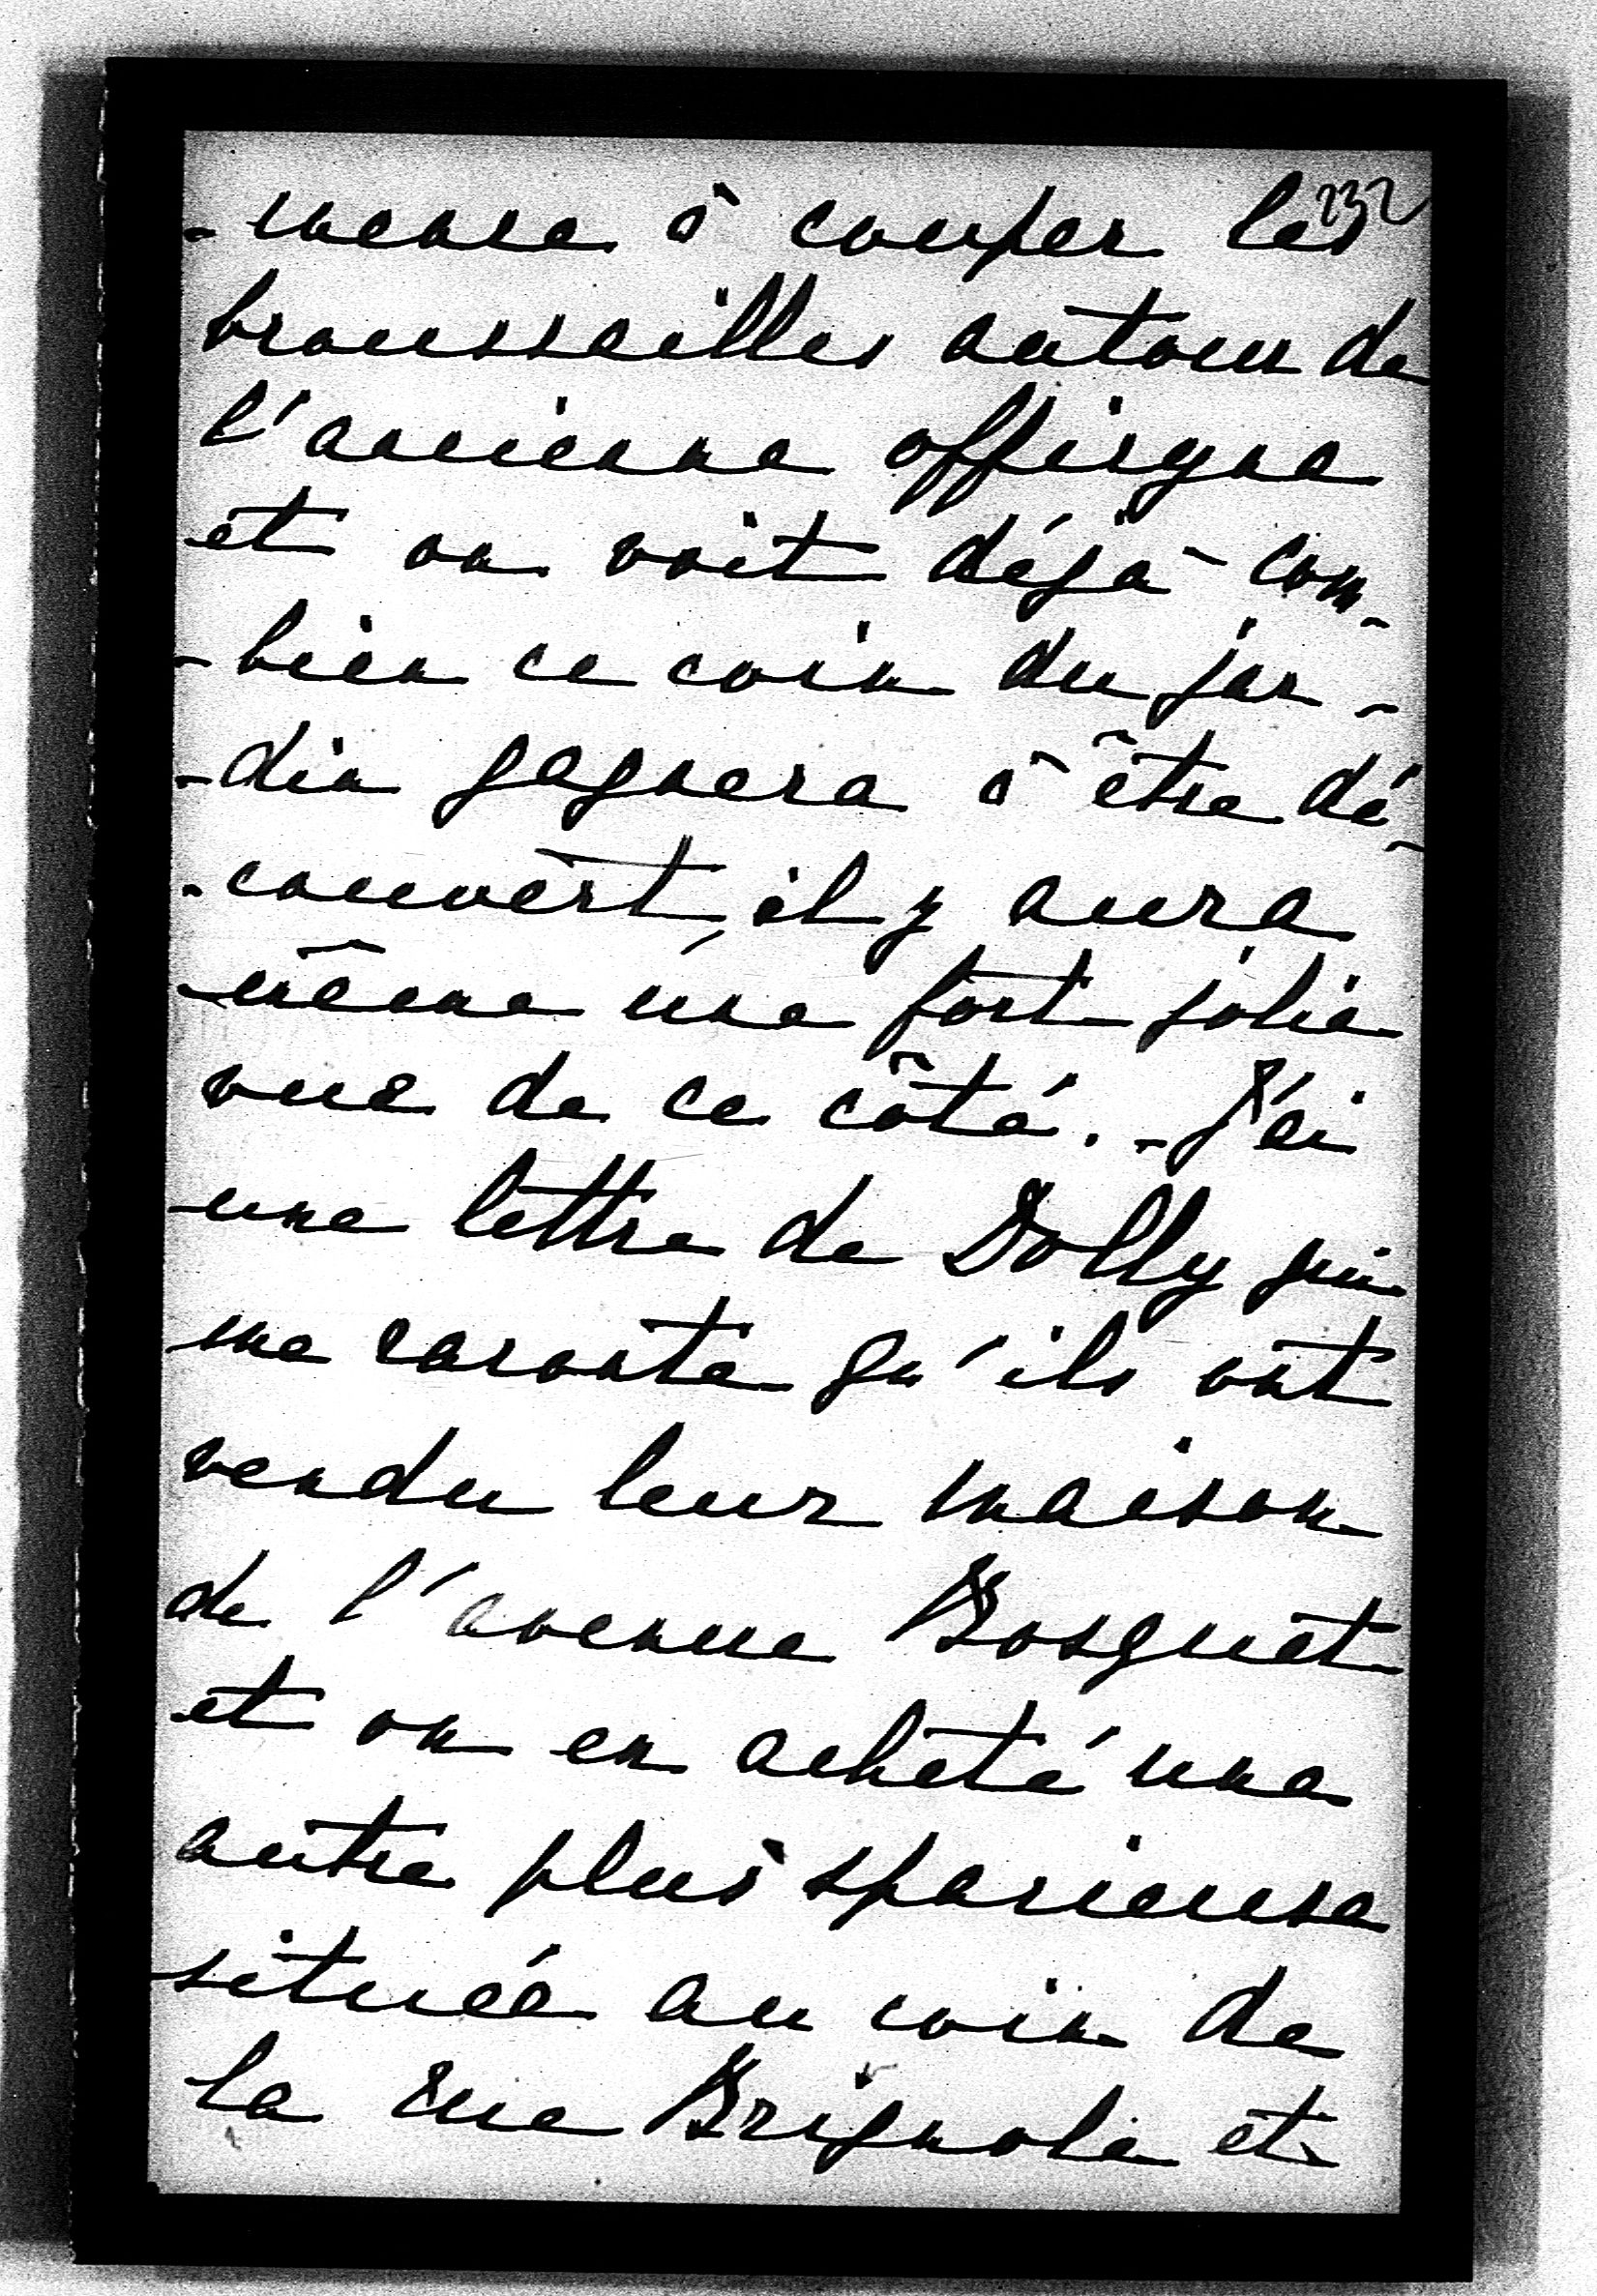 232
-mence à couper les
broussailles autour de
l'ancienne offirgne
et on voit déjà com-
-bien ce coin du jar-
-din gagnera à être dé-
-couvert, il y aura
même une fort jolie
vue de ce côté. - J'ai
une lettre de Dolly qui
me raconte qu'ils ont
vendu leur maison
de l'avenue Bosquet
et on en acheté une
autre plus spacieuse
située au coin de
la rue Brignole et